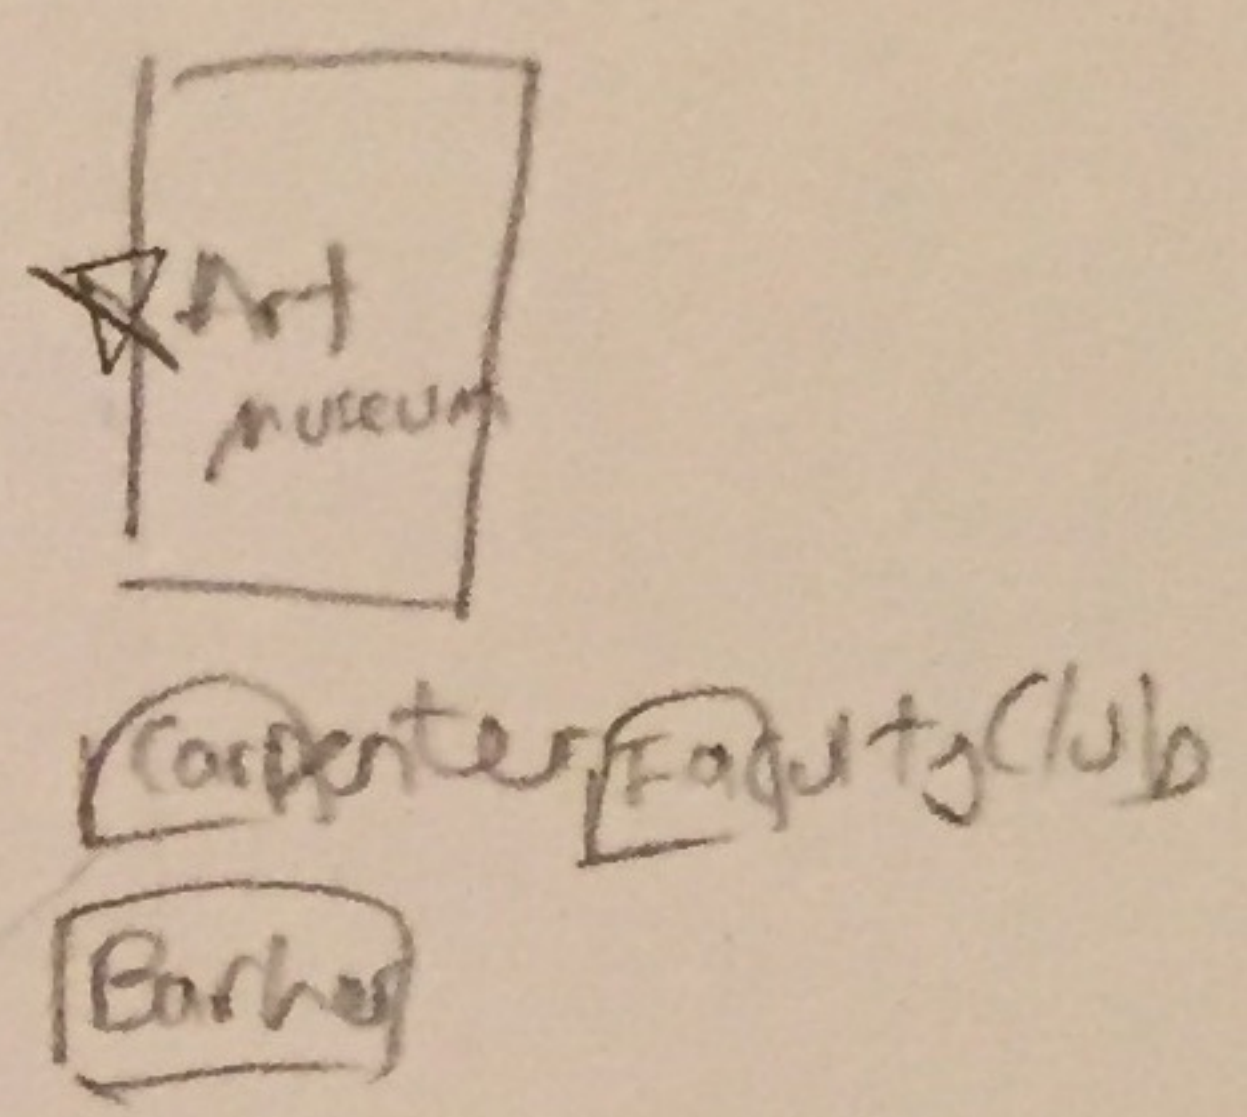 Art
museum
Carpenter Faqulty Club
Barker